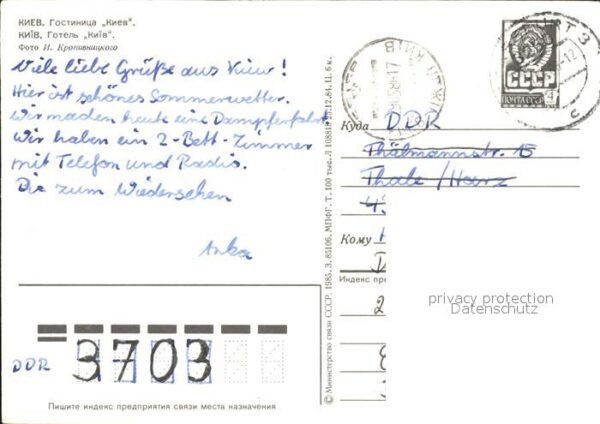 КИЕВ. Гостиница „Киев“.
КИЇВ. Готель „Київ“.
Фото И. Кропивницкого
Viele liebe Grüße aus Kiew!
Hier ist schönes Sommerwetter.
Wir machen heute eine Dampferfahrt
Wir haben ein 2-Bett-Zimmer
mit Telefon und Radio.
Bis zum Wiedersehen
Anka
© Министерство связи СССР. 1985. З. 85106. МПФГ. Т. 100 тыс.
СССР
ПОЧТА СССР
4
Куда DDR
Thälmannstr. 15
Thale / Harz
Кому
Индекс пре
2
privacy protection
Datenschutz
DDR 3703
Пишите индекс предприятия связи места назначения